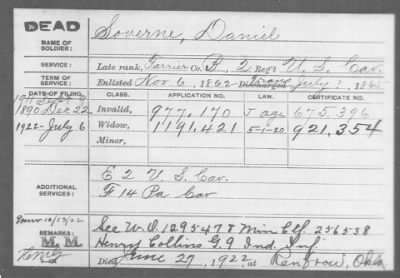 DEAD
NAME OF SOLDIER: Soverne, Daniel
SERVICE: Late rank, Farrier Co. B, 2 Reg't U.S. Cav.
TERM OF SERVICE: Enlisted Nov 6, 1862 Discharged Trans July 1863
DATE OF FILING. CLASS. APPLICATION NO. LAW. CERTIFICATE NO.
1890 Dec 22 Invalid, 977,170 age 675,396
1922 July 6 Widow, 1191,421 5-1-20 921,354
Minor,
ADDITIONAL SERVICES: E 2 U.S. Cav.
F 14 Pa Cav
10/13/22
REMARKS: See W.O. 1295478 Min Ctf. 256538
Henry Collins G. 9 Ind. Inf.
Died June 27, 1922, at Rentrow, Okla